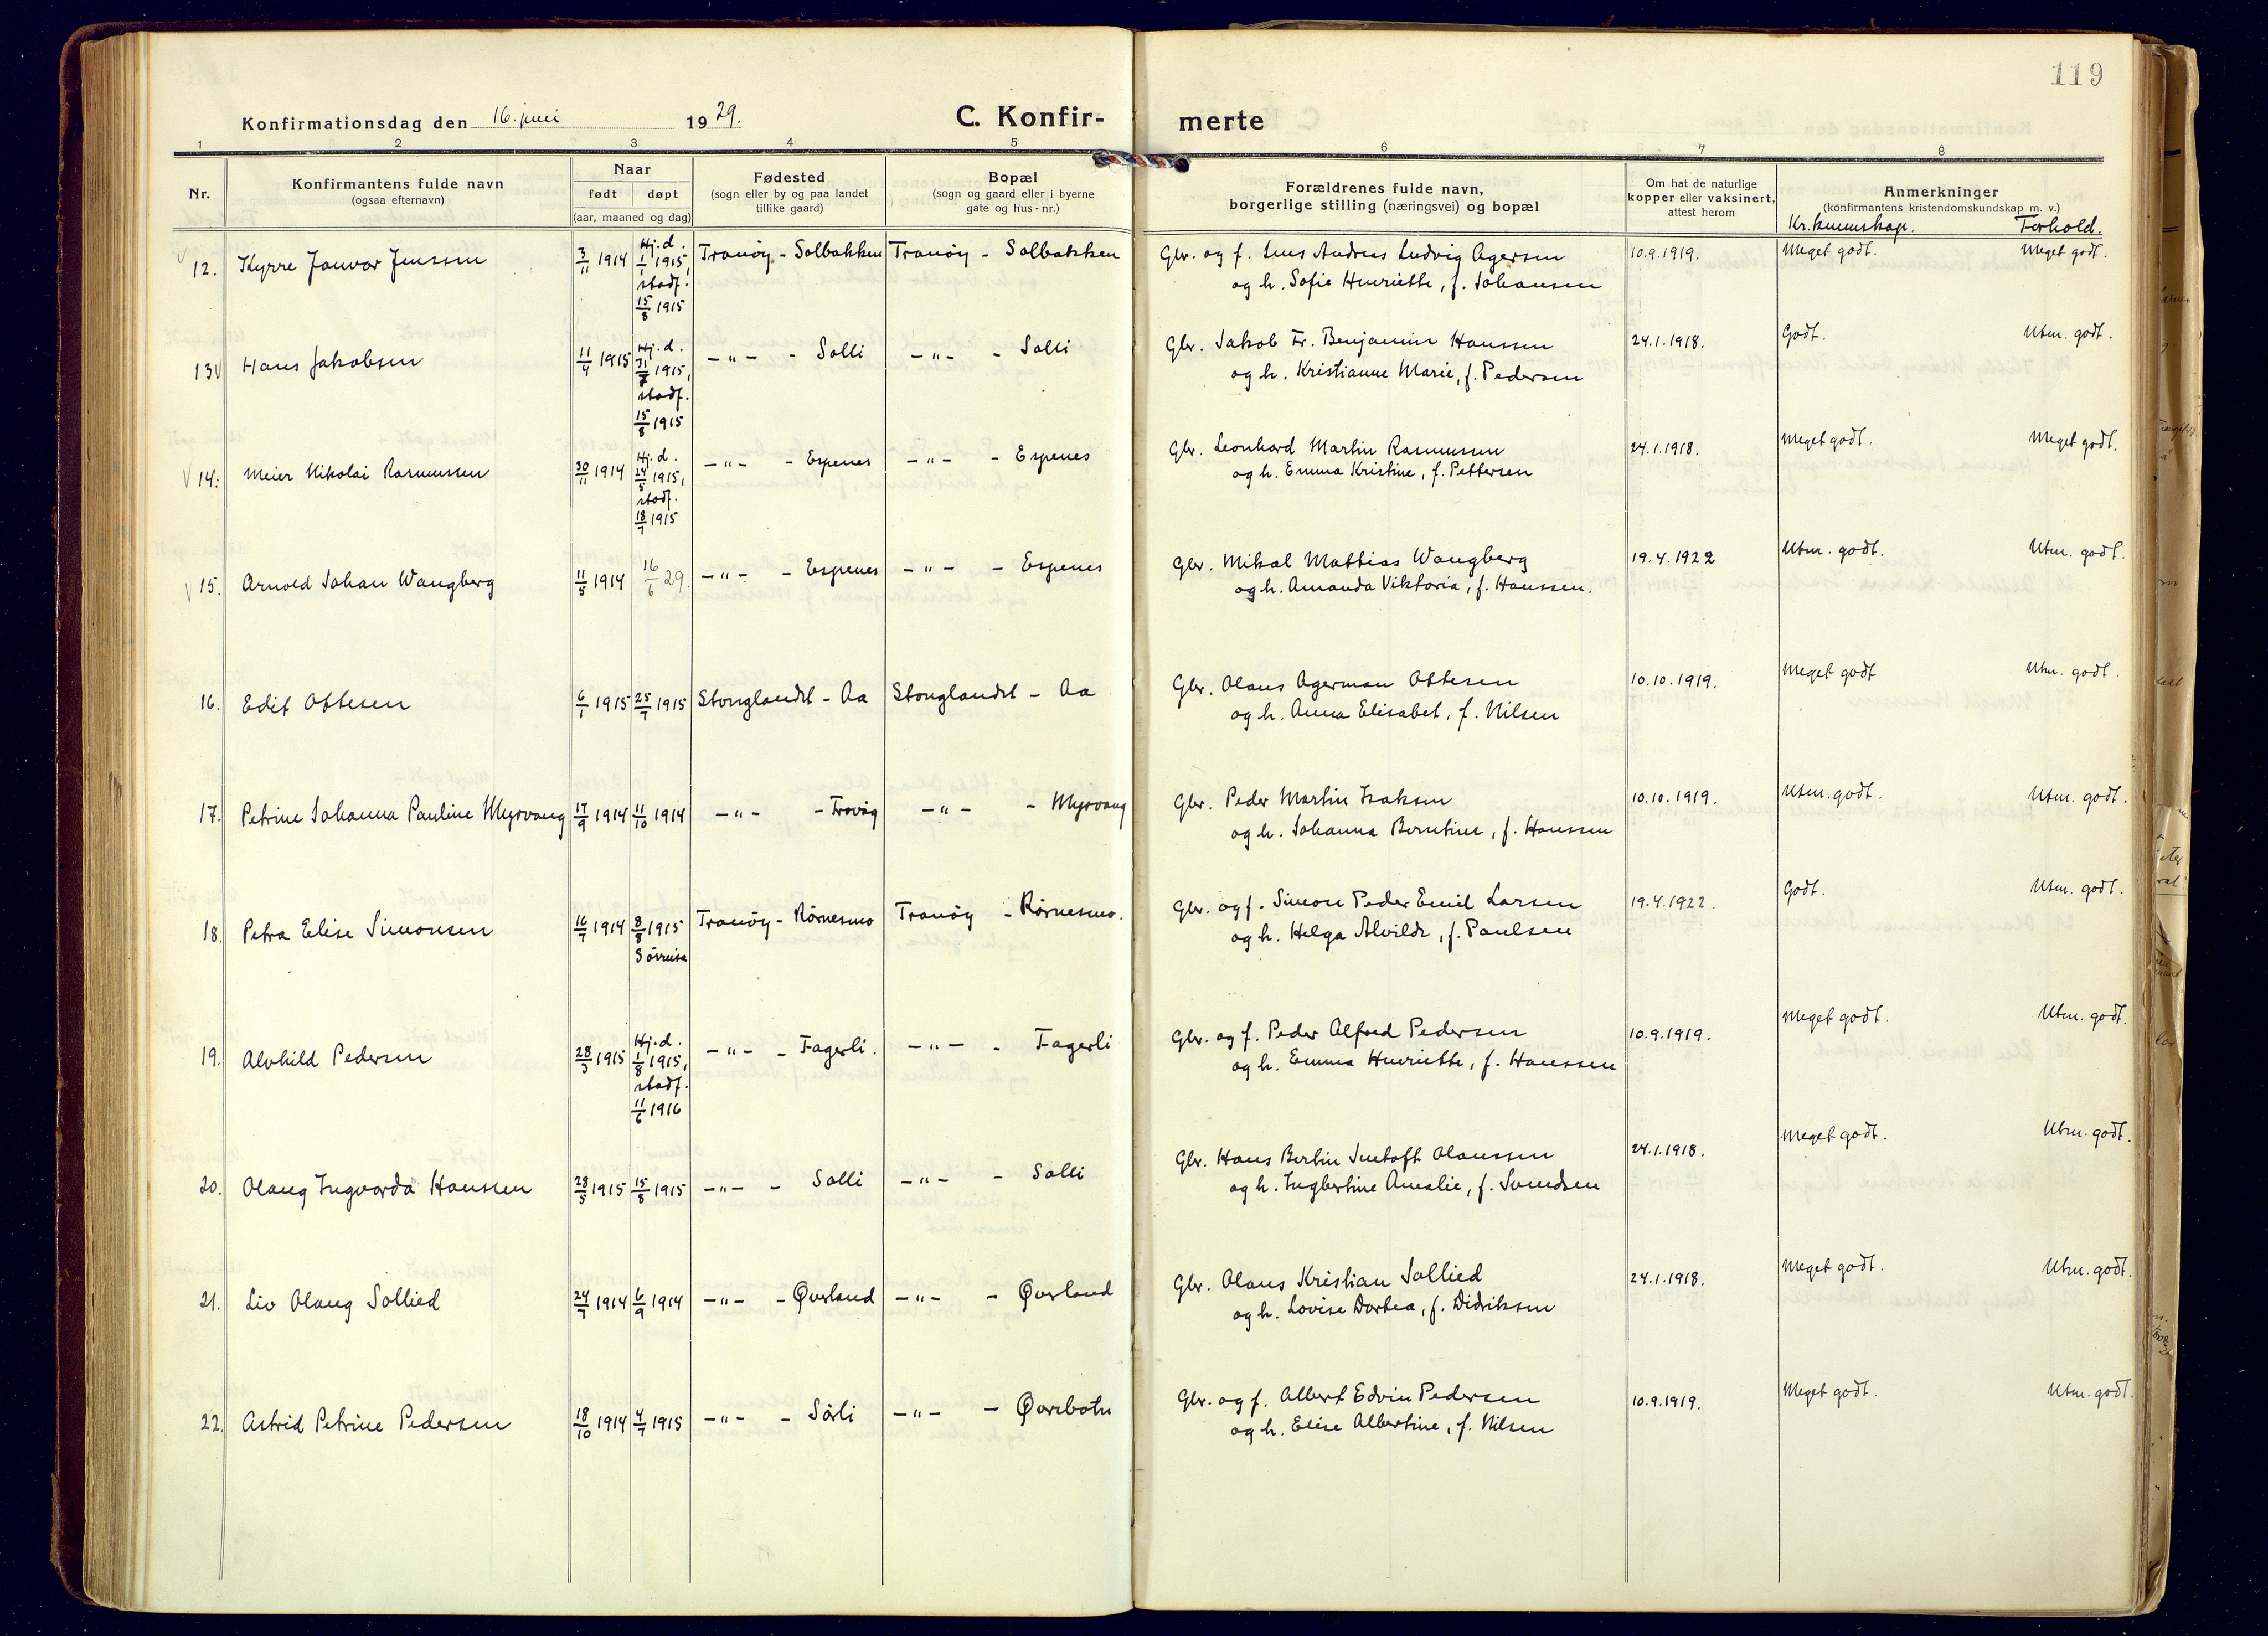 119
Konfirmationsdag den 16. juni 1929.
C. Konfir- merte
1 2 3 4 5 6 7 8
Nr.
Konfirmantens fulde navn
(ogsaa efternavn)
Naar
født døpt
(aar, maaned og dag)
Fødested
(sogn eller by og paa landet
tillike gaard)
Bopæl
(sogn og gaard eller i byerne
gate og hus-nr.)
Forældrenes fulde navn,
borgerlige stilling (næringsvei) og bopæl
Om hat de naturlige
kopper eller vaksinert,
attest herom
Anmerkninger
(konfirmantens kristendomskundskap m. v.)
Kr.kunnskap. Forhold.
12. Kyrre Janvar Jenssen 3/11 1914 Hj. d. 1/1 1915, stadf. 15/8 1915 Tranöy - Solbakken Tranöy - Solbakken Gbr. og f. Jens Andreas Ludvig Agersen 10.9.1919. Meget godt. Meget godt.
og h. Sofie Henriette, f. Johansen
13 Hans Jakobsen 11/4 1915 Hj. d. 31/7 1915, stadf. 15/8 1915 -"- - Solli -"- - Solli Gbr. Jakob Fr. Benjamin Hanssen 24.1.1918. Godt. Utm. godt.
og h. Kristianne Marie, f. Pedersen
14. Meier Nikolai Rasmussen 30/11 1914 Hj. d. 24/5 1915, stadf. 18/7 1915 -"- - Espenes -"- - Espenes Gbr. Leonhard Martin Rasmussen 24.1.1918. Meget godt. Meget godt.
og h. Emma Kristine, f. Pettersen
15. Arnold Johan Wangberg 11/5 1914 16/6 29. -"- - Espenes -"- - Espenes Gbr. Mikal Mattias Wangberg 19.4.1922 Utm. godt. Utm. godt.
og h. Amanda Viktoria, f. Hanssen.
16. Edit Ottesen 6/1 1915 25/7 1915 Stonglandet - Aa Stonglandet - Aa Gbr. Olaus Agerman Ottesen 10.10.1919. Meget godt Utm. godt.
og h. Anna Elisabet, f. Nilsen
17. Petrine Johanna Pauline Myrvang 17/9 1914 11/10 1914 -"- - Trovåg -"- - Myrvang Gbr. Peder Martin Isaksen 10.10.1919. Utm. godt. Utm. godt.
og h. Johanna Berntine, f. Hanssen
18. Petra Elise Simonsen 16/7 1914 8/8 1915 Sörreisa Tranöy - Rörnesmo Tranöy - Rörnesmo. Gbr. og f. Simon Peder Emil Larsen 19.4.1922. Godt. Utm. godt.
og h. Helga Alvilde, f. Paulsen
19. Alvhild Pedersen 28/3 1915 Hj. d. 1/8 1915, stadf. 11/6 1916 -"- - Fagerli. -"- - Fagerli Gbr. og f. Peder Alfred Pedersen 10.9.1919. Meget godt. Utm. godt.
og h. Emma Henriette, f. Hanssen
20. Olaug Ingvarda Hanssen 28/5 1915 15/8 1915 -"- - Solli -"- - Solli Gbr. Hans Bertin Jentoft Olaussen 24.1.1918. Meget godt. Utm. godt.
og h. Ingbertine Amalie, f. Svendsen
21. Liv Olaug Sollied 24/7 1914 6/9 1914 -"- - Øverland -"- - Øverland Gbr. Olaus Kristian Sollied 24.1.1918. Meget godt. Utm. godt.
og h. Lovise Dortea, f. Didriksen
22. Astrid Petrine Pedersen 18/10 1914 4/7 1915 -"- - Sörli -"- - Øverbotn Gbr. og f. Albert Edvin Pedersen 10.9.1919. Meget godt. Utm. godt.
og h. Elise Albertine, f. Nilsen